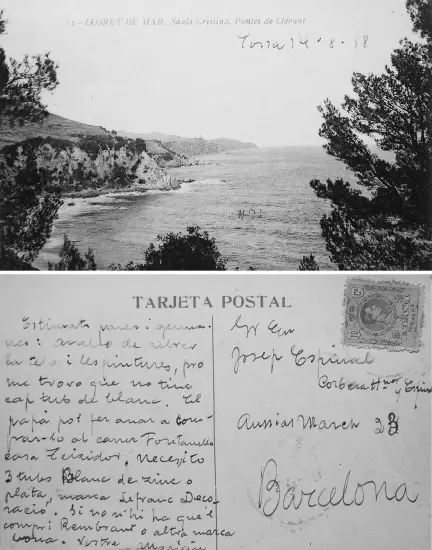 12 - LLORET DE MAR. Santa Cristina. Puntes de Llevant
Tossa 14-8-18
TARJETA POSTAL
Estimats pares i germa-
nes: acabo de rebrer
la tela i les pintures, pro
me trovo que no tinc
cap tub de blanc. El
papá pot fer anar a com-
prar-lo al carrer Fontanella
casa Teixidor, necesito
3 tubs Blanc de zinc o
plata, marca Lefranc Deco-
ració. Si no n'hi ha que'l
compri Rembrant o altra marca
bona. Vostre
Sr En
Josep Espinal
Corbera
Ausias March 23
Barcelona